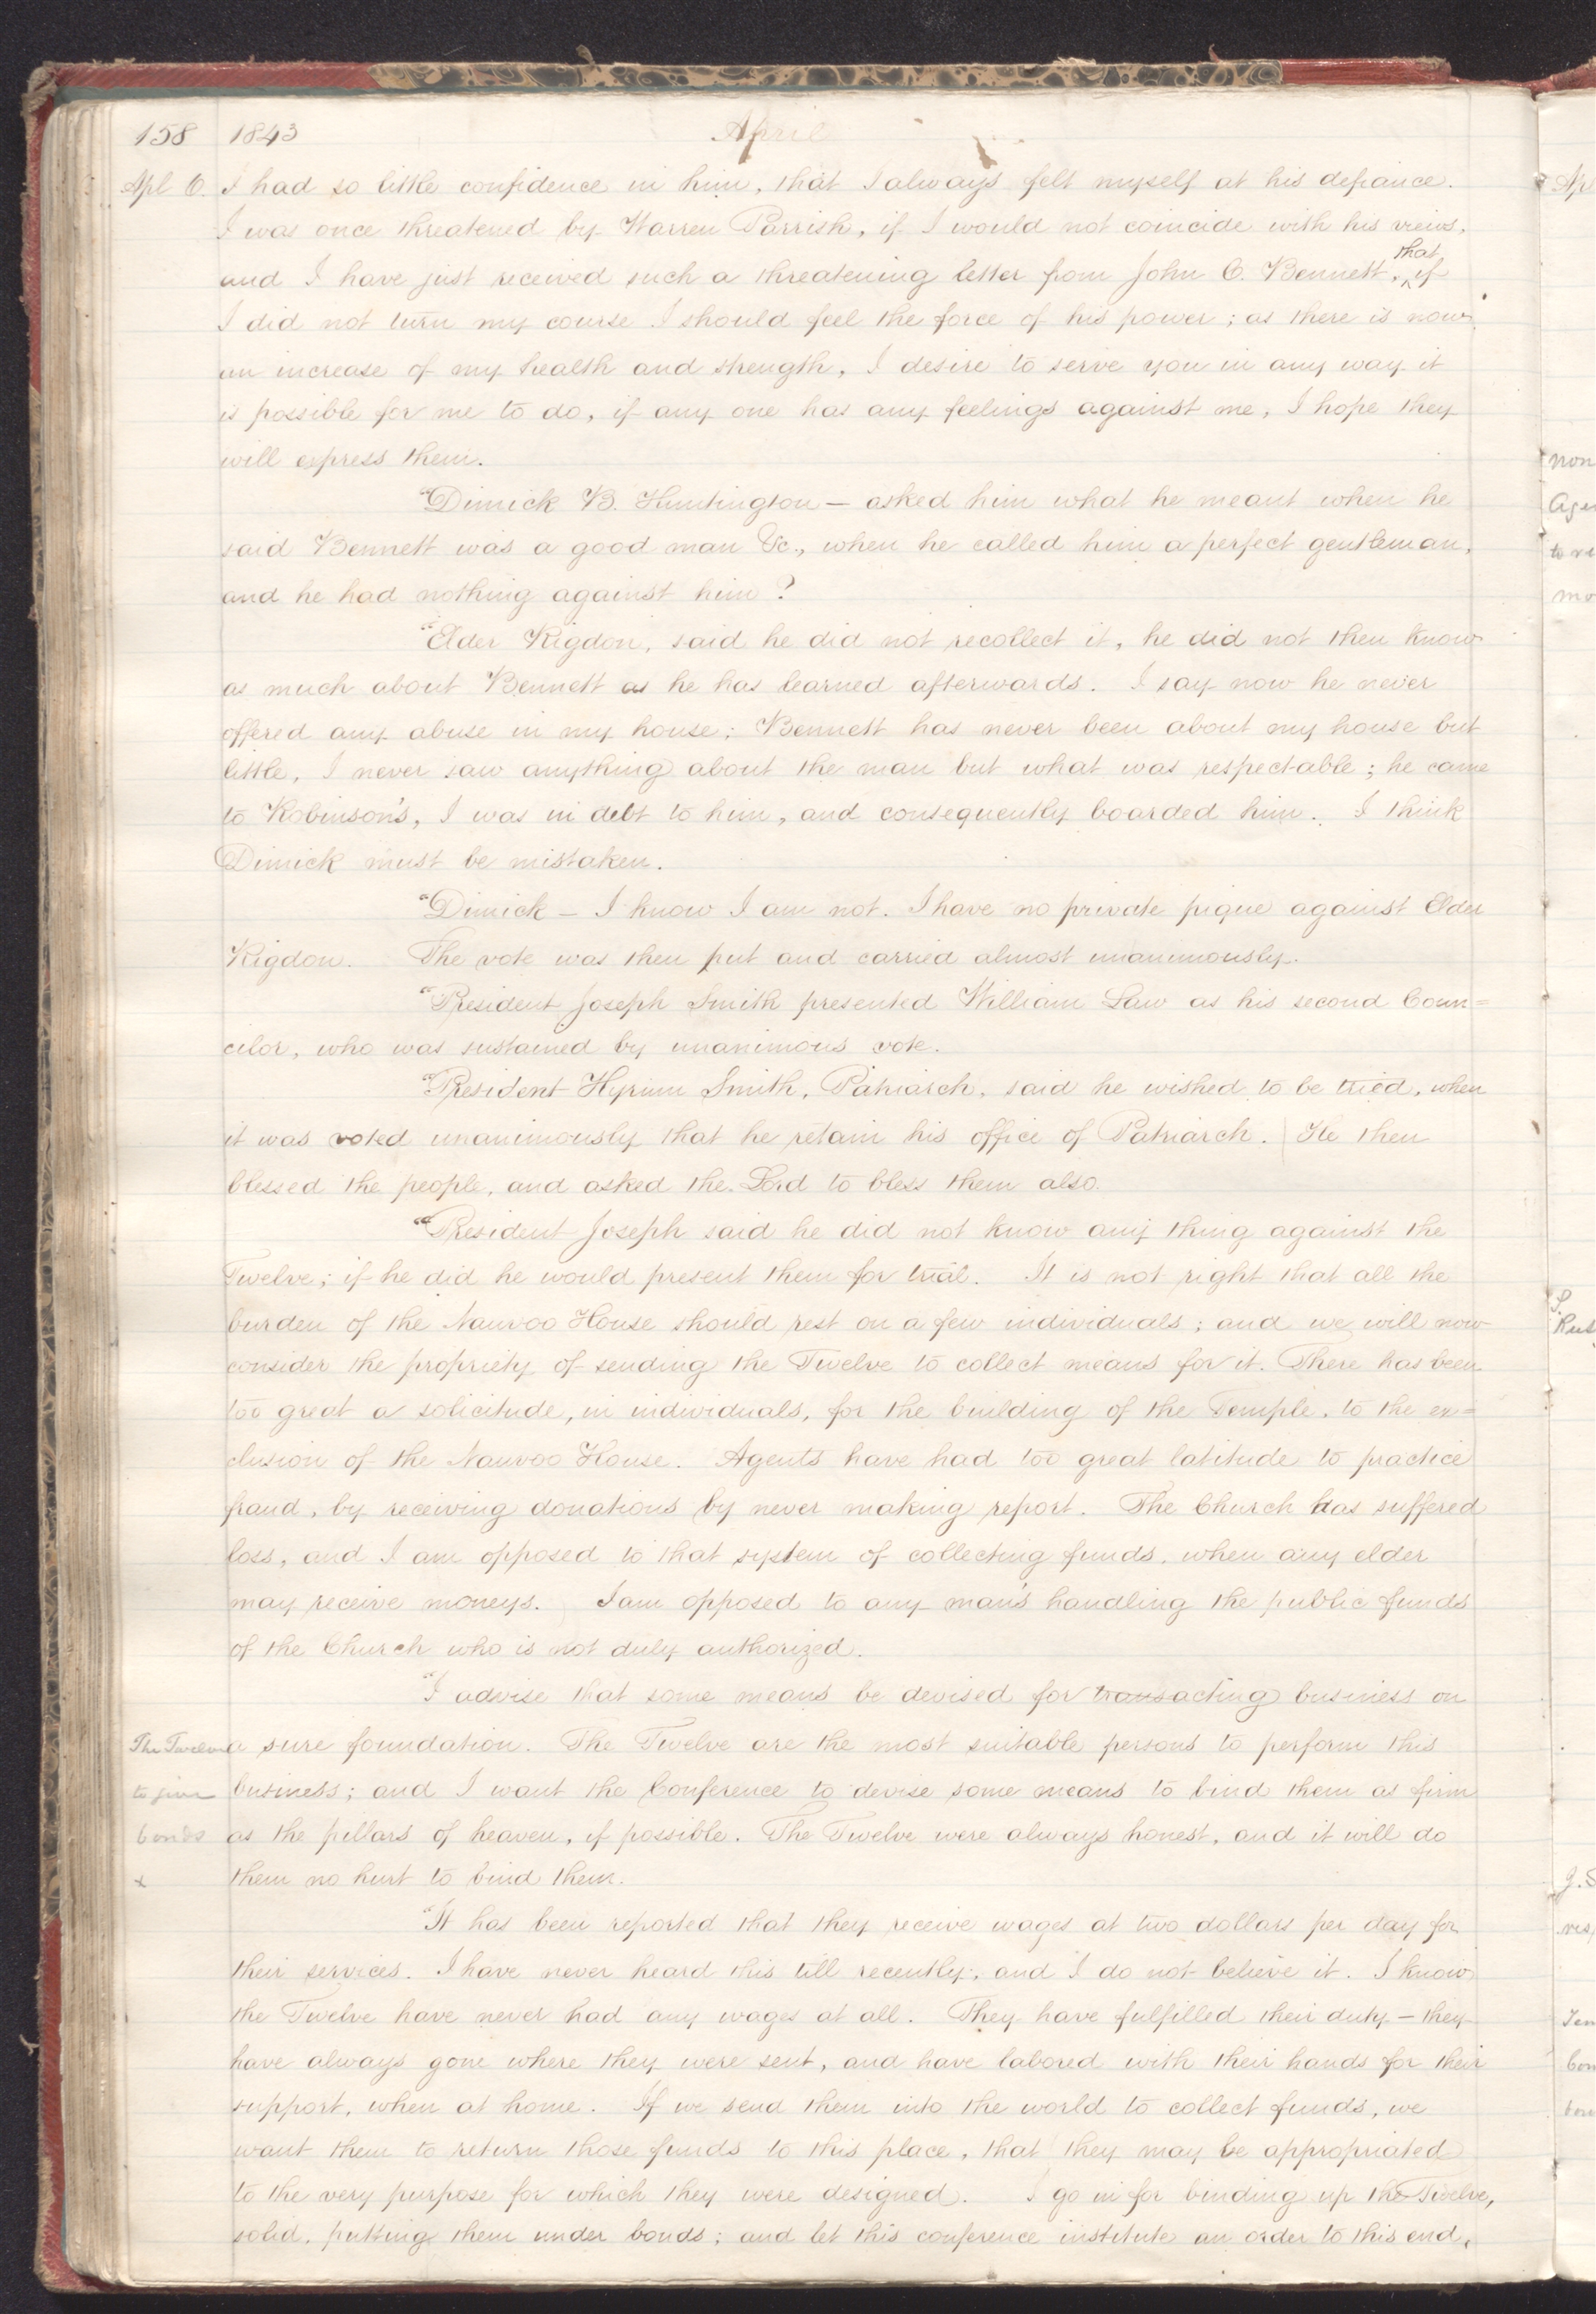 158 1843 April
Apl 6. I had so little confidence in him, that I always felt myself at his defiance.
I was once threatened by Warren Parrish, if I would not coincide with his views,
and I have just received such a threatening letter from John C. Bennett, that if
I did not turn my course I should feel the force of his power; as there is now
an increase of my health and strength, I desire to serve you in any way it
is possible for me to do, if any one has any feelings against me, I hope they
will express them.
"Dimick B. Huntington — asked him what he meant when he
said Bennett was a good man &c., when he called him a perfect gentleman,
and he had nothing against him?
"Elder Rigdon, said he did not recollect it, he did not then know
as much about Bennett as he has learned afterwards. I say now he never
offered any abuse in my house; Bennett has never been about my house but
little, I never saw anything about the man but what was respectable; he came
to Robinson's, I was in debt to him, and consequently boarded him. I think
Dimick must be mistaken.
"Dimick — I know I am not. I have no private pique against Elder
Rigdon. The vote was then put and carried almost unanimously.
"President Joseph Smith presented William Law as his second Coun=
cilor, who was sustained by unanimous vote.
"President Hyrum Smith, Patriarch, said he wished to be tried, when
it was voted unanimously that he retain his office of Patriarch. He then
blessed the people, and asked the Lord to bless them also.
"President Joseph said he did not know any thing against the
Twelve; if he did he would present them for trial. It is not right that all the
burden of the Nauvoo House should rest on a few individuals; and we will now
consider the propriety of sending the Twelve to collect means for it. There has been
too great a solicitude, in individuals, for the building of the Temple, to the ex=
clusion of the Nauvoo House. Agents have had too great latitude to practice
fraud, by receiving donations by never making report. The Church has suffered
loss, and I am opposed to that system of collecting funds, when any elder
may receive moneys. I am opposed to any man's handling the public funds
of the Church who is not duly authorized.
"I advise that some means be devised for transacting business on
The Twelve a sure foundation. The Twelve are the most suitable persons to perform this
to give business; and I want the Conference to devise some means to bind them as firm
bonds as the pillars of heaven, if possible. The Twelve were always honest, and it will do
x them no hurt to bind them.
"It has been reported that they receive wages at two dollars per day for
their services. I have never heard this till recently, and I do not believe it. I know
the Twelve have never had any wages at all. They have fulfilled their duty — they
have always gone where they were sent, and have labored with their hands for their
support, when at home. If we send them into the world to collect funds, we
want them to return those funds to this place, that they may be appropriated
to the very purpose for which they were designed. I go in for binding up the Twelve,
solid, putting them under bonds; and let this conference institute an order to this end,